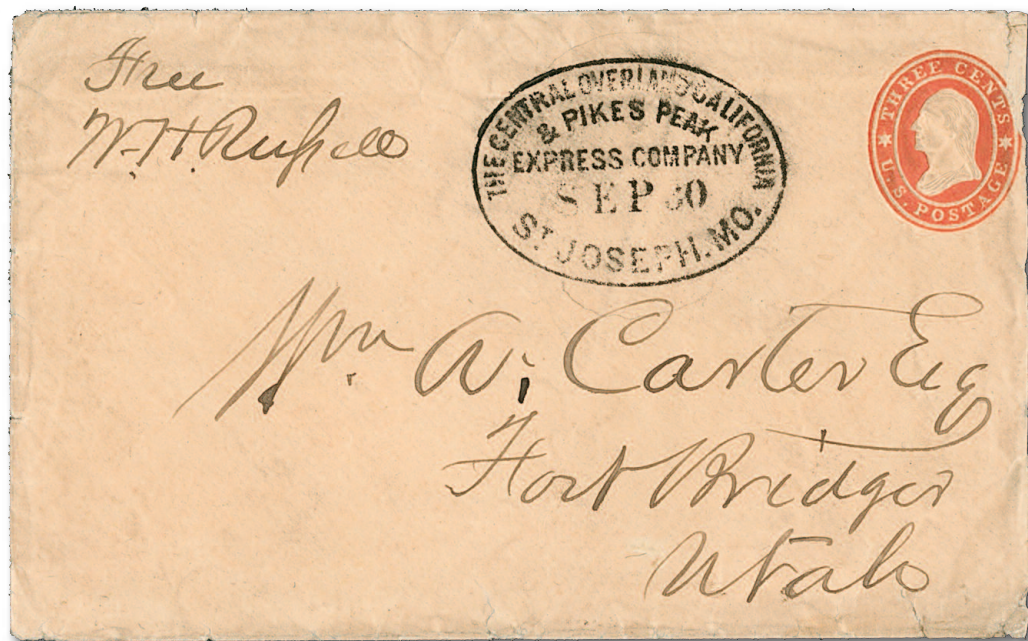 Free
W. H. Russell
THE CENTRAL OVERLAND CALIFORNIA
& PIKES PEAK
EXPRESS COMPANY
SEP 30
ST JOSEPH. MO.
THREE CENTS
U.S. POSTAGE
Wm. A. Carter Esq
Fort Bridger
Utah